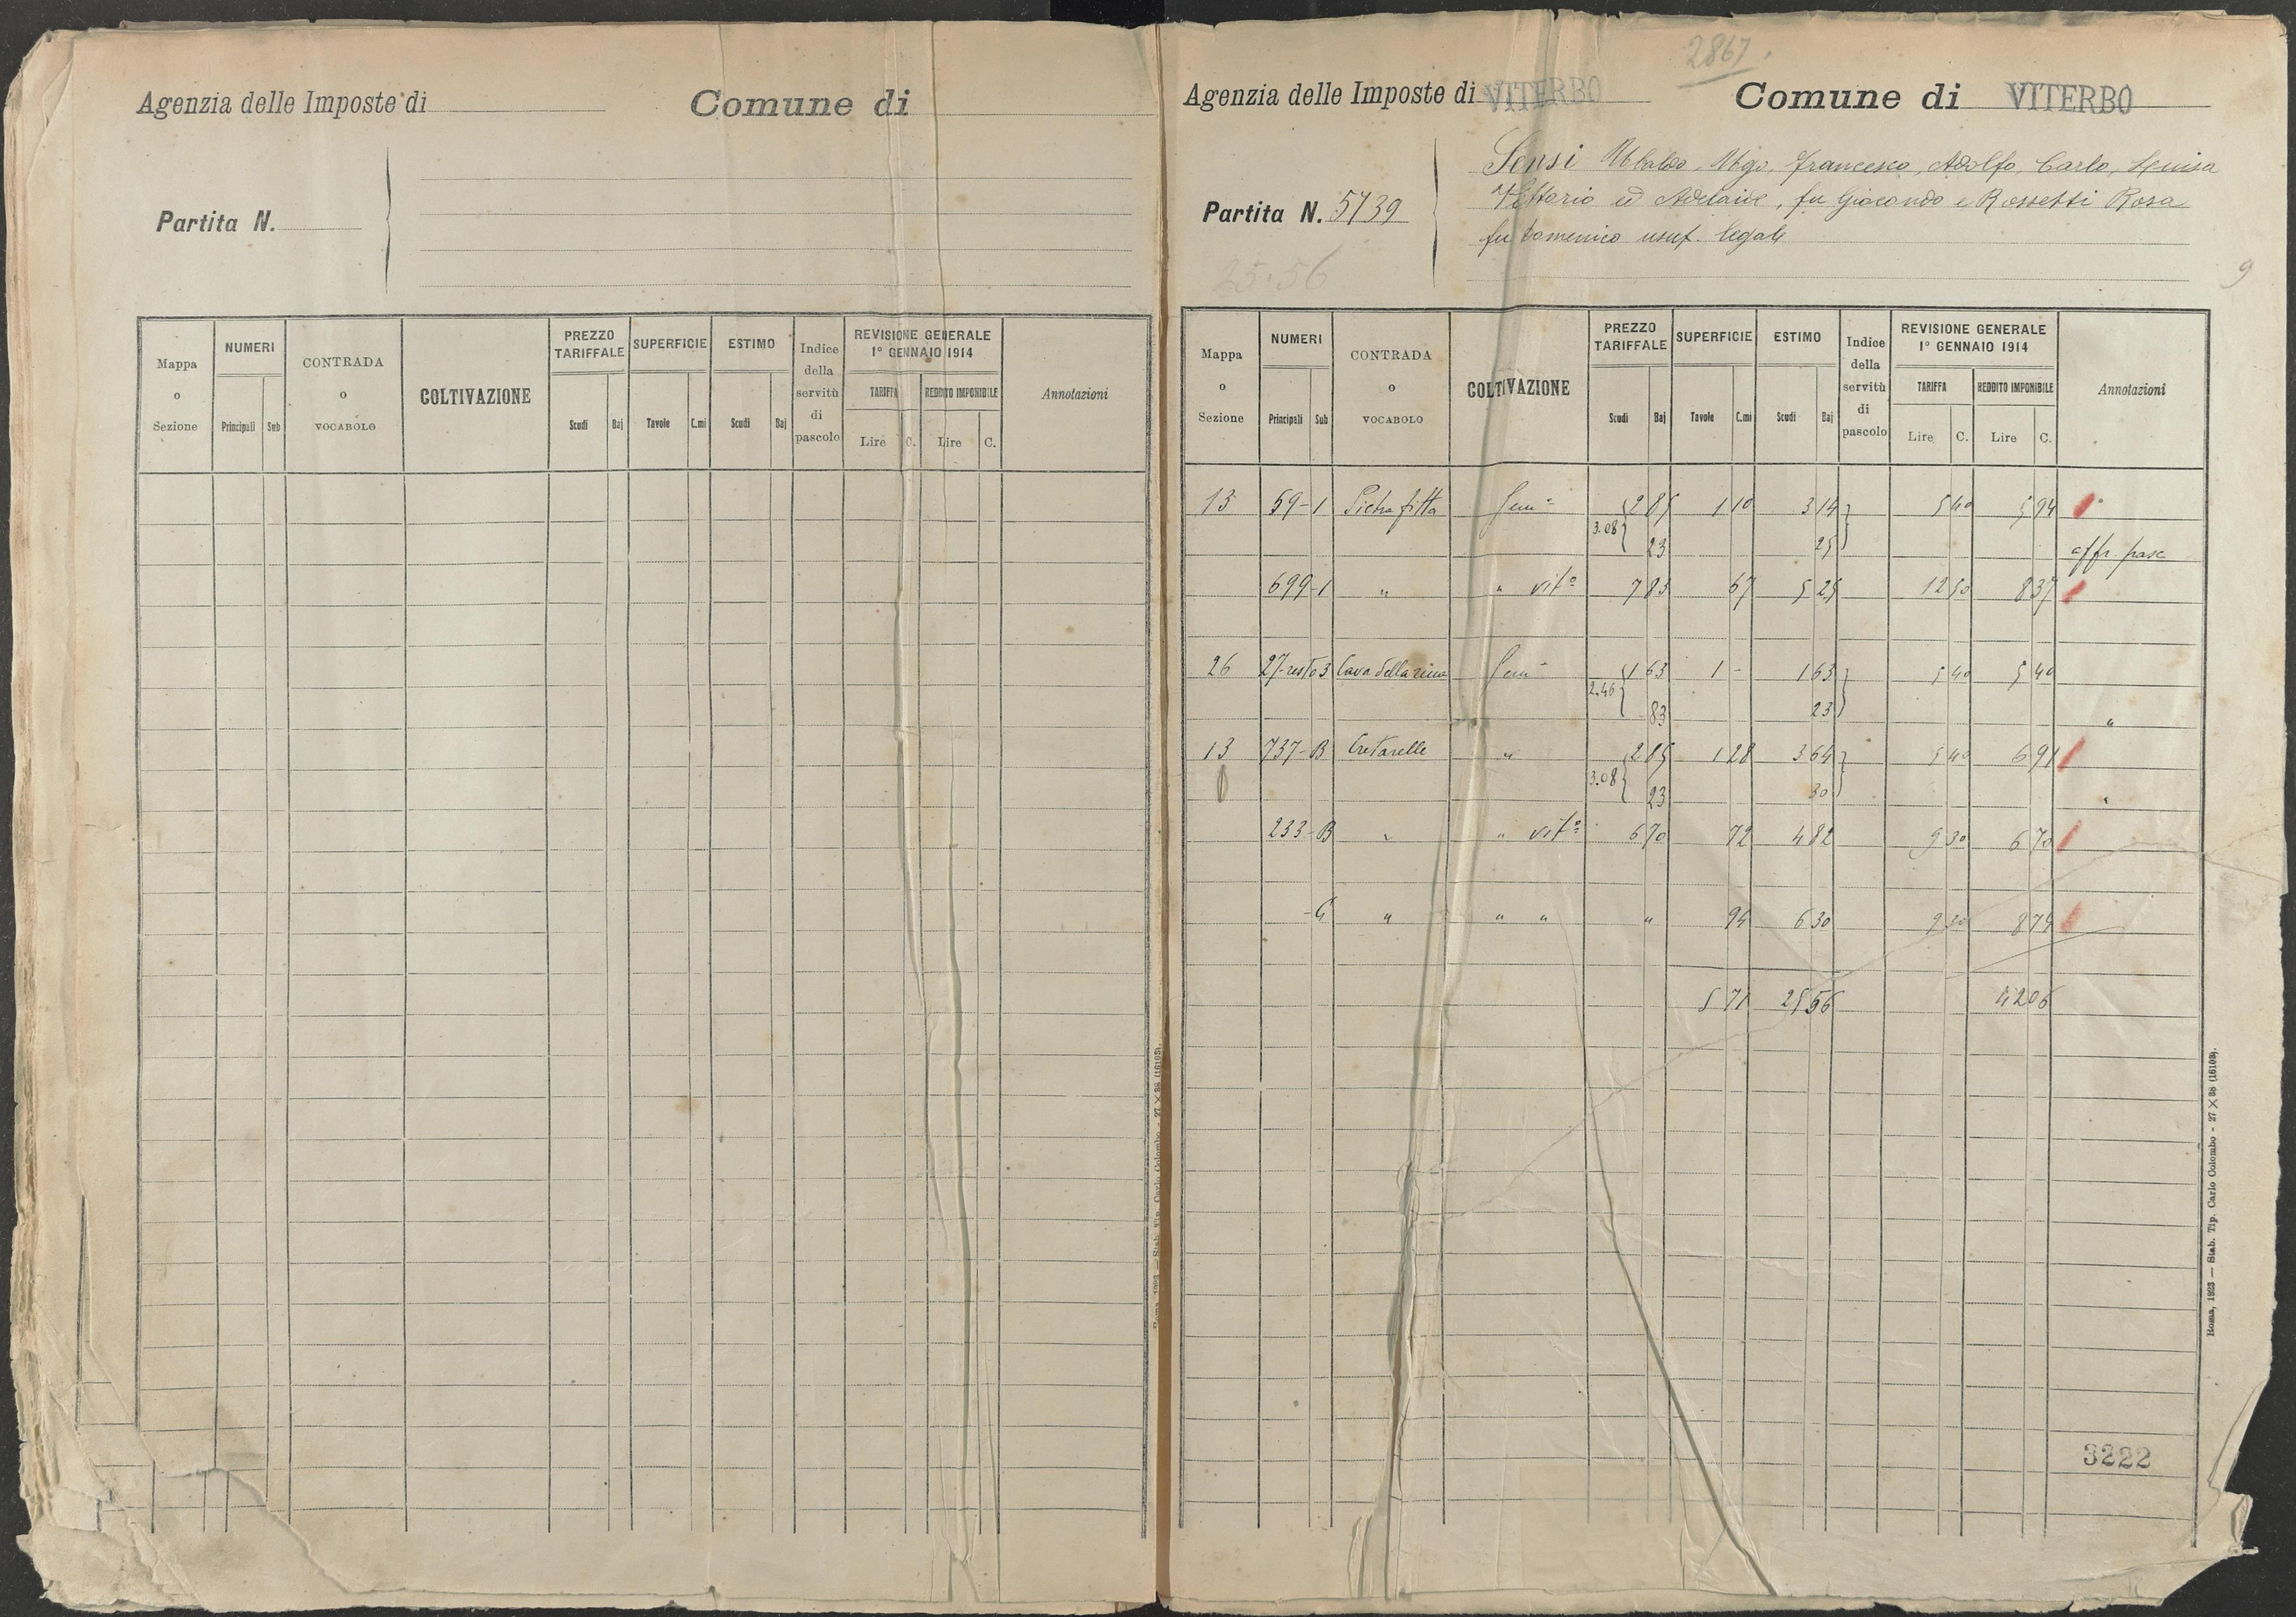 Agenzia delle Imposte di
Comune di
Partita N.
Mappa o Sezione
NUMERI
Principali Sub
CONTRADA o VOCABOLO
COLTIVAZIONE
PREZZO TARIFFALE
Scudi Baj
SUPERFICIE
Tavole C.mi
ESTIMO
Scudi Baj
Indice della servitù di pascolo
REVISIONE GENERALE
1° GENNAIO 1914
TARIFFA
Lire C.
REDDITO IMPONIBILE
Lire C.
Annotazioni
2867
Agenzia delle Imposte di VITERBO
Comune di VITERBO
Partita N. 5739
Sensi Ubaldo, Ugo, Francesco, Adolfo, Carlo, Luisa
Vittorio ed Adelaide, fu Giocondo e Rossetti Rosa
fu Domenico usuf. legale
25.56
9
Mappa o Sezione
NUMERI
Principali Sub
CONTRADA o VOCABOLO
COLTIVAZIONE
PREZZO TARIFFALE
Scudi Baj
SUPERFICIE
Tavole C.mi
ESTIMO
Scudi Baj
Indice della servitù di pascolo
REVISIONE GENERALE
1° GENNAIO 1914
TARIFFA
Lire C.
REDDITO IMPONIBILE
Lire C.
Annotazioni
13 59-1 Pietrafitta Sem° 2 85 1 10 3 14 5 40 5 94
3.08 23 25 affr. pasc
699-1 " " vit° 7 83 67 5 25 12 50 8 37
26 27-resto 3 Cava della rena Sem° 1 63 1 - 1 63 5 40 5 40
2.46 83 23 "
13 737-B Cretarelle " 2 85 1 28 3 64 5 40 6 91
3.08 23 30 "
233-B " " vit° 6 70 72 4 82 9 30 6 70
-C " " " " 94 6 30 9 30 8 74
5 71 25 56 42 06
3222
Roma, 1923 — Stab. Tip. Carlo Colombo - 27 × 38 (16103).